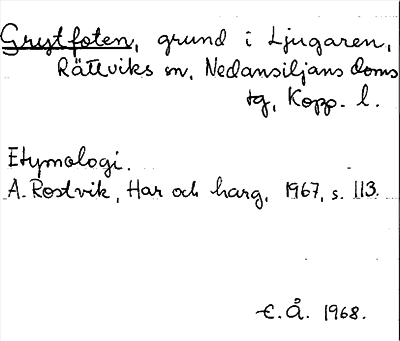 Grytfoten, grund i Ljugaren,
Rättviks sn, Nedansiljans doms
tg, Kopp. l.
Etymologi.
A. Rostvik, Har och harg, 1967, s. 113.
E. Å. 1968.